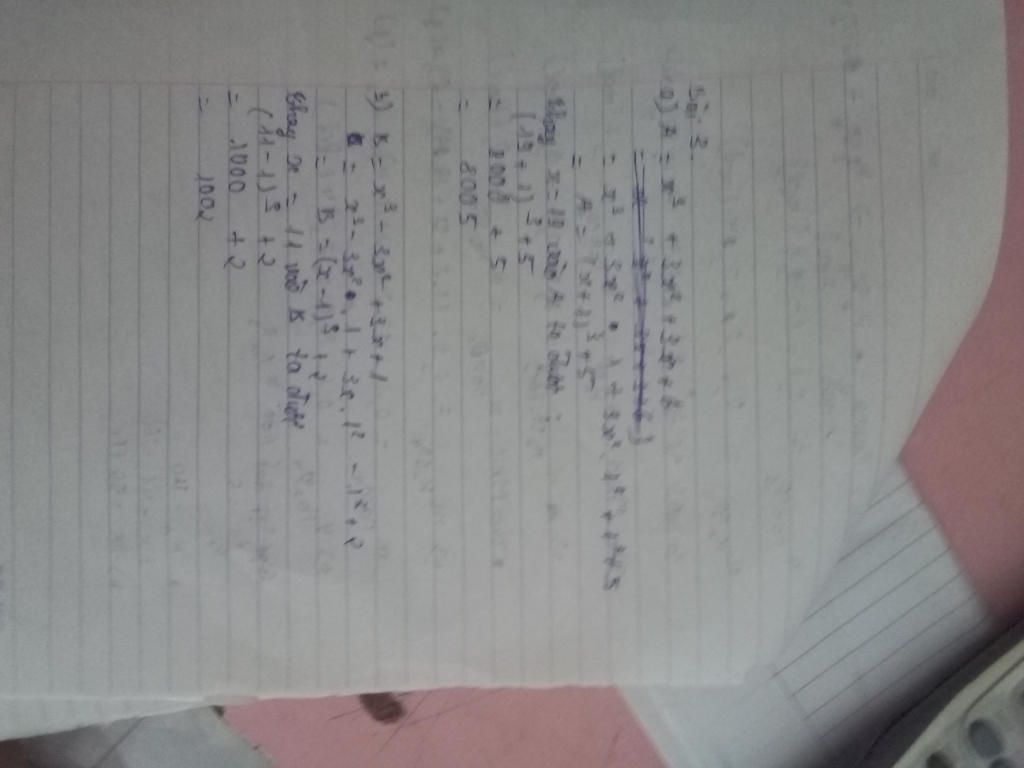 Bài 3.
a) A = x³ + 3x² + 3x + 6
= x³ + 3x² . 1 + 3x . 1² + 1³ + 5
= A = (x+1)³ + 5
Thay x = 19 vào A ta được
(19 + 1)³ + 5
= 8000 + 5
= 8005
b) B = x³ - 3x² + 3x + 1
= x³ - 3x² . 1 + 3x . 1² - 1³ + 2
= B = (x - 1)³ + 2
Thay x = 11 vào B ta được
(11 - 1)³ + 2
= 1000 + 2
= 1002